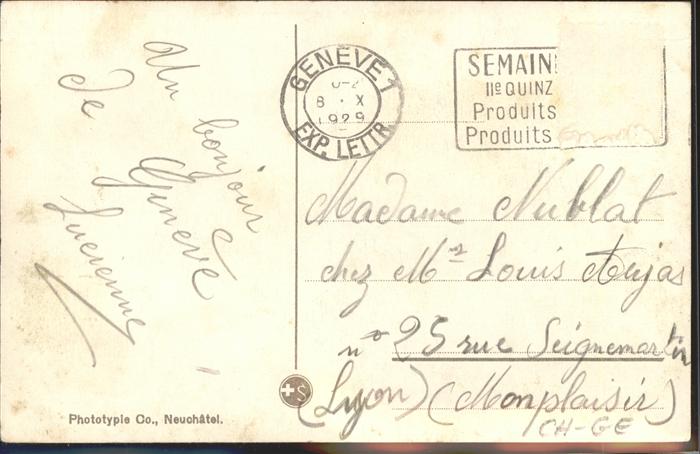 Un bonjour
de Genève
Lucienne
GENÈVE 1
8 · X
1929
EXP. LETTR
SEMAIN
IIe QUINZ
Produits
Produits
Madame Nublat
chez Mr Louis
n° 25 rue Seignemartin
(Lyon) (Monplaisir)
CH-GE
+S
Phototypie Co., Neuchâtel.